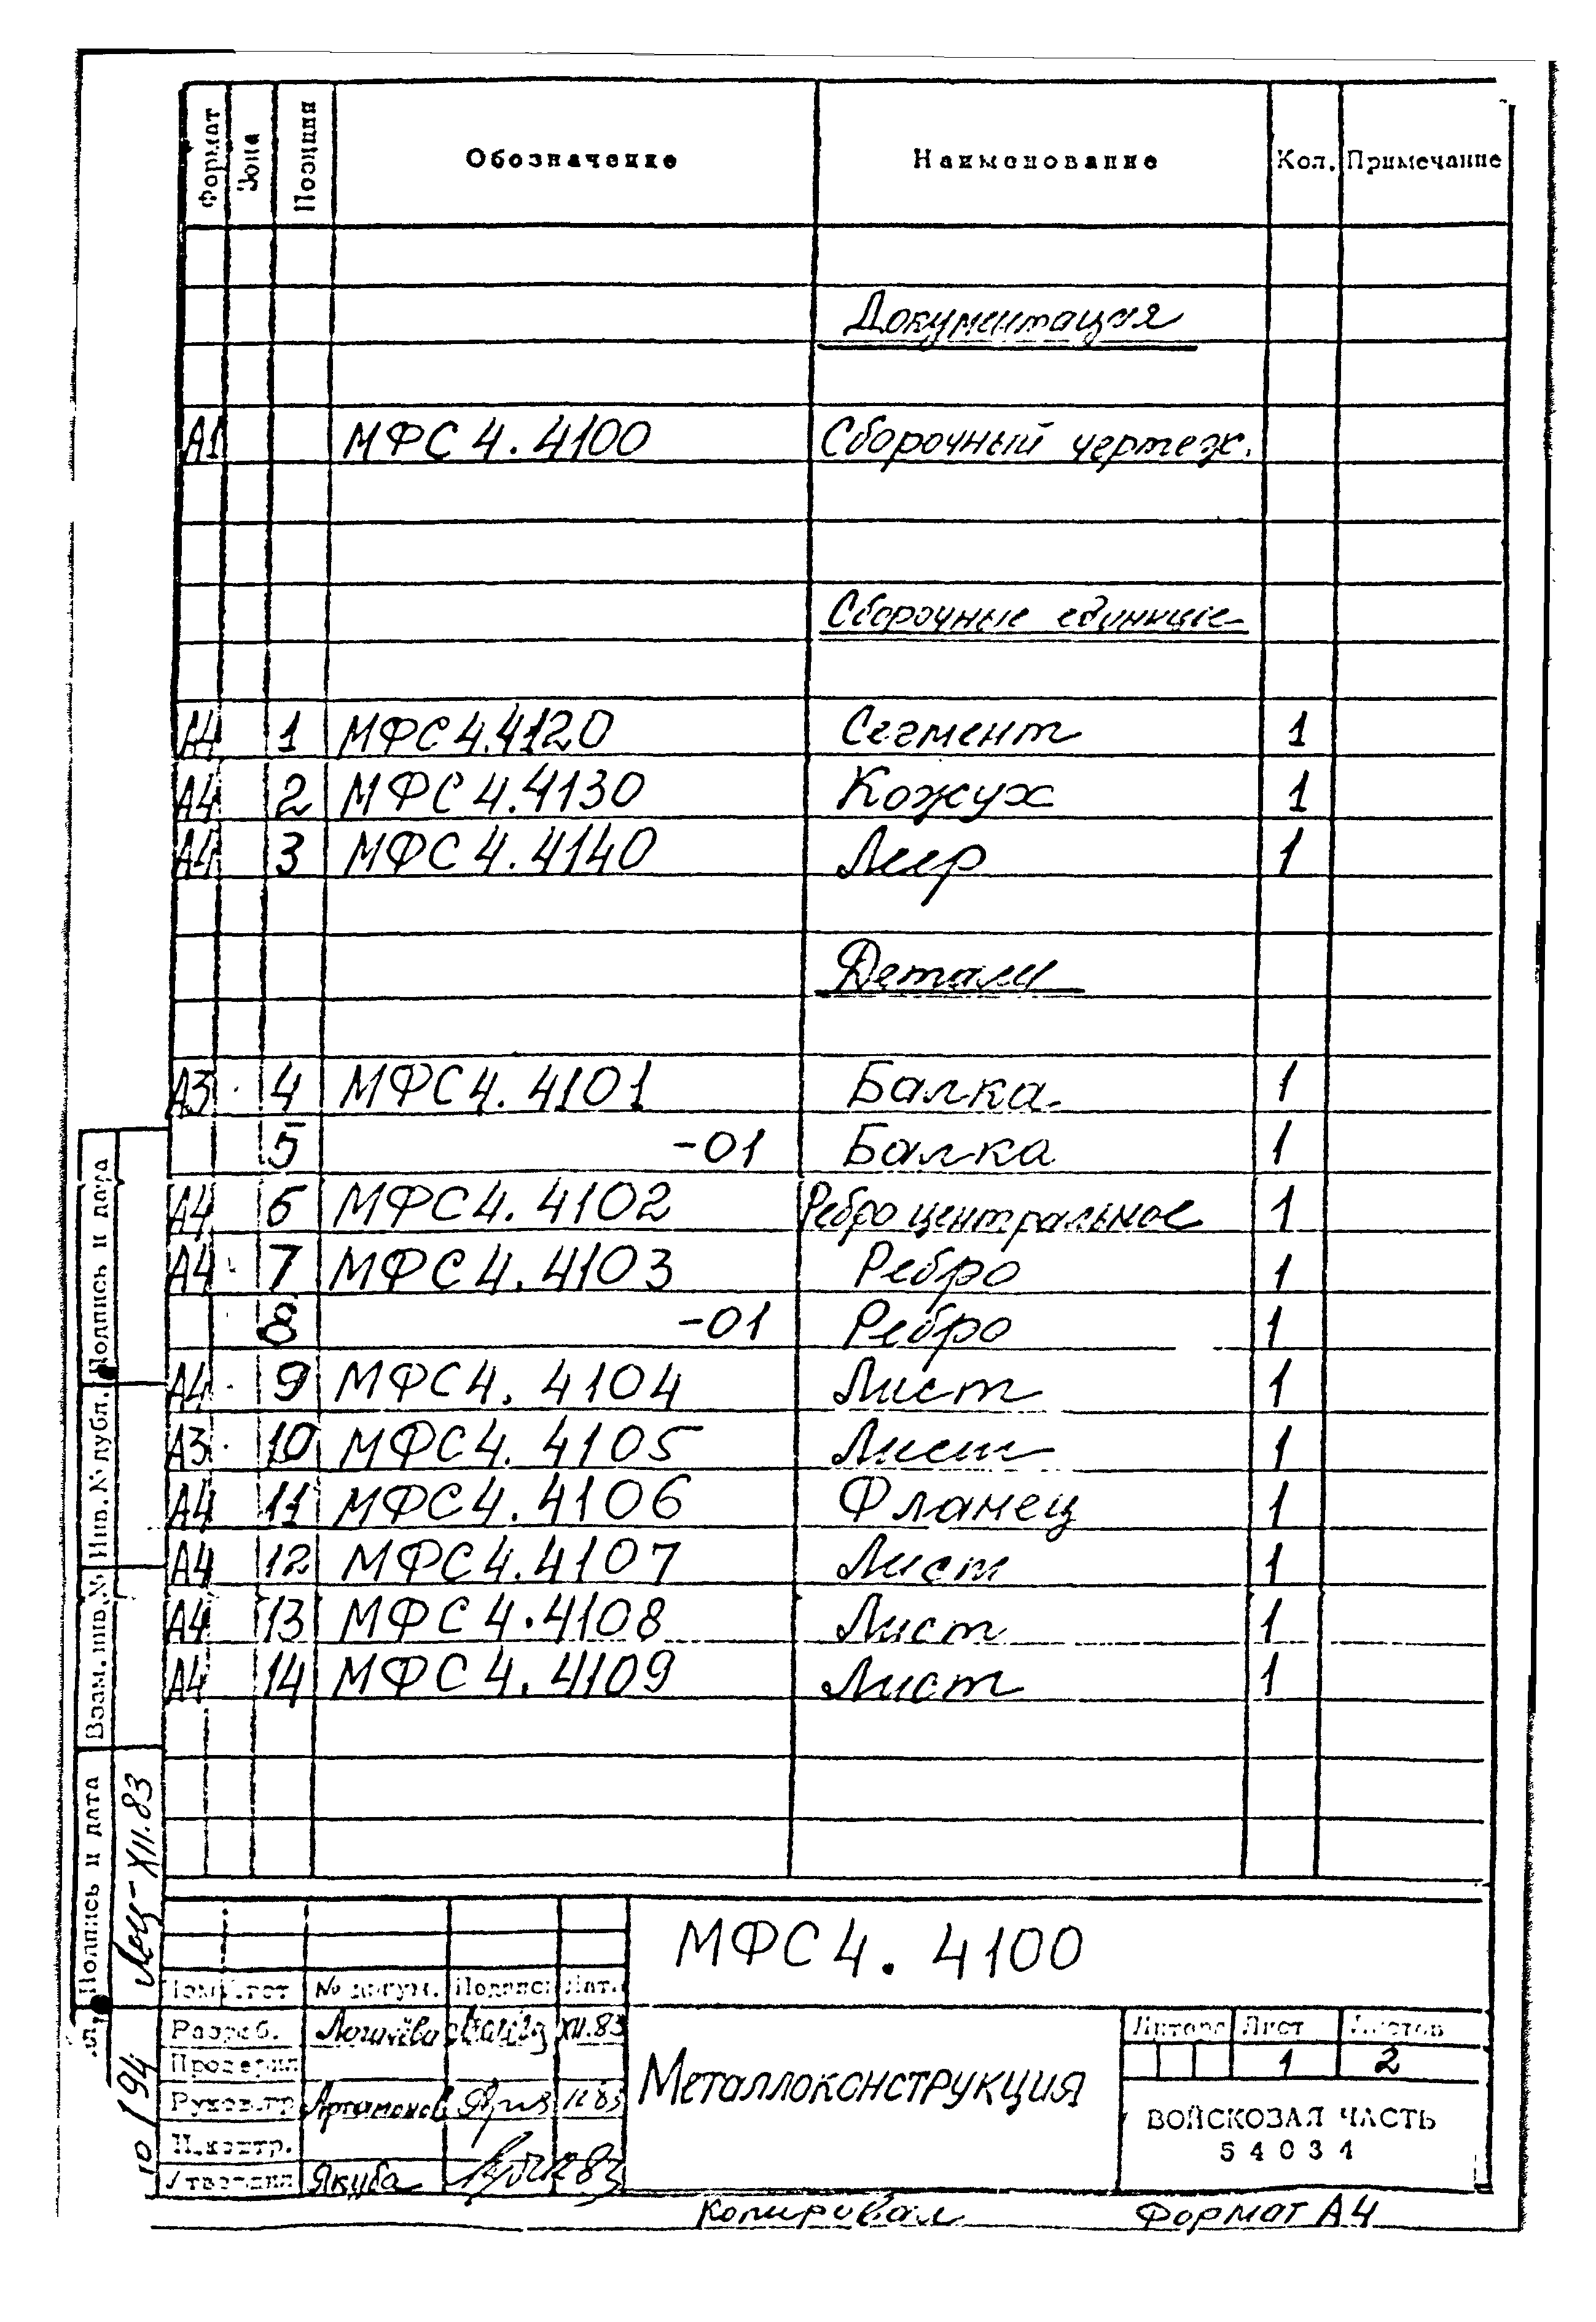 Формат Зона Позиция Обозначение Наименование Кол. Примечание
Документация
А1 МФС 4. 4100 Сборочный чертеж.
Сборочные единицы
А4 1 МФС 4.4120 Сегмент 1
А4 2 МФС 4.4130 Кожух 1
А4 3 МФС 4.4140 Леер 1
Детали
А3 4 МФС 4. 4101 Балка 1
5 -01 Балка 1
А4 6 МФС 4. 4102 Ребро центральное 1
А4 7 МФС 4. 4103 Ребро 1
8 -01 Ребро 1
А4 9 МФС 4. 4104 Лист 1
А3 10 МФС 4. 4105 Лист 1
А4 11 МФС 4. 4106 Фланец 1
А4 12 МФС 4. 4107 Лист 1
А4 13 МФС 4. 4108 Лист 1
А4 14 МФС 4. 4109 Лист 1
Подпись и дата
Инв. № дубл.
Взам. инв. №
Подпись и дата
XII.83
10/94
МФС 4. 4100
Изм Лист № докум. Подпись Дат.
Разраб. XII.83
Проверил
Руков. гр. Артамонов 12 83
Н.контр.
Утвердил Якуба 12 83
Металлоконструкция
Литера Лист Листов
1 2
ВОЙСКОВАЯ ЧАСТЬ
54031
Копировал Формат А4